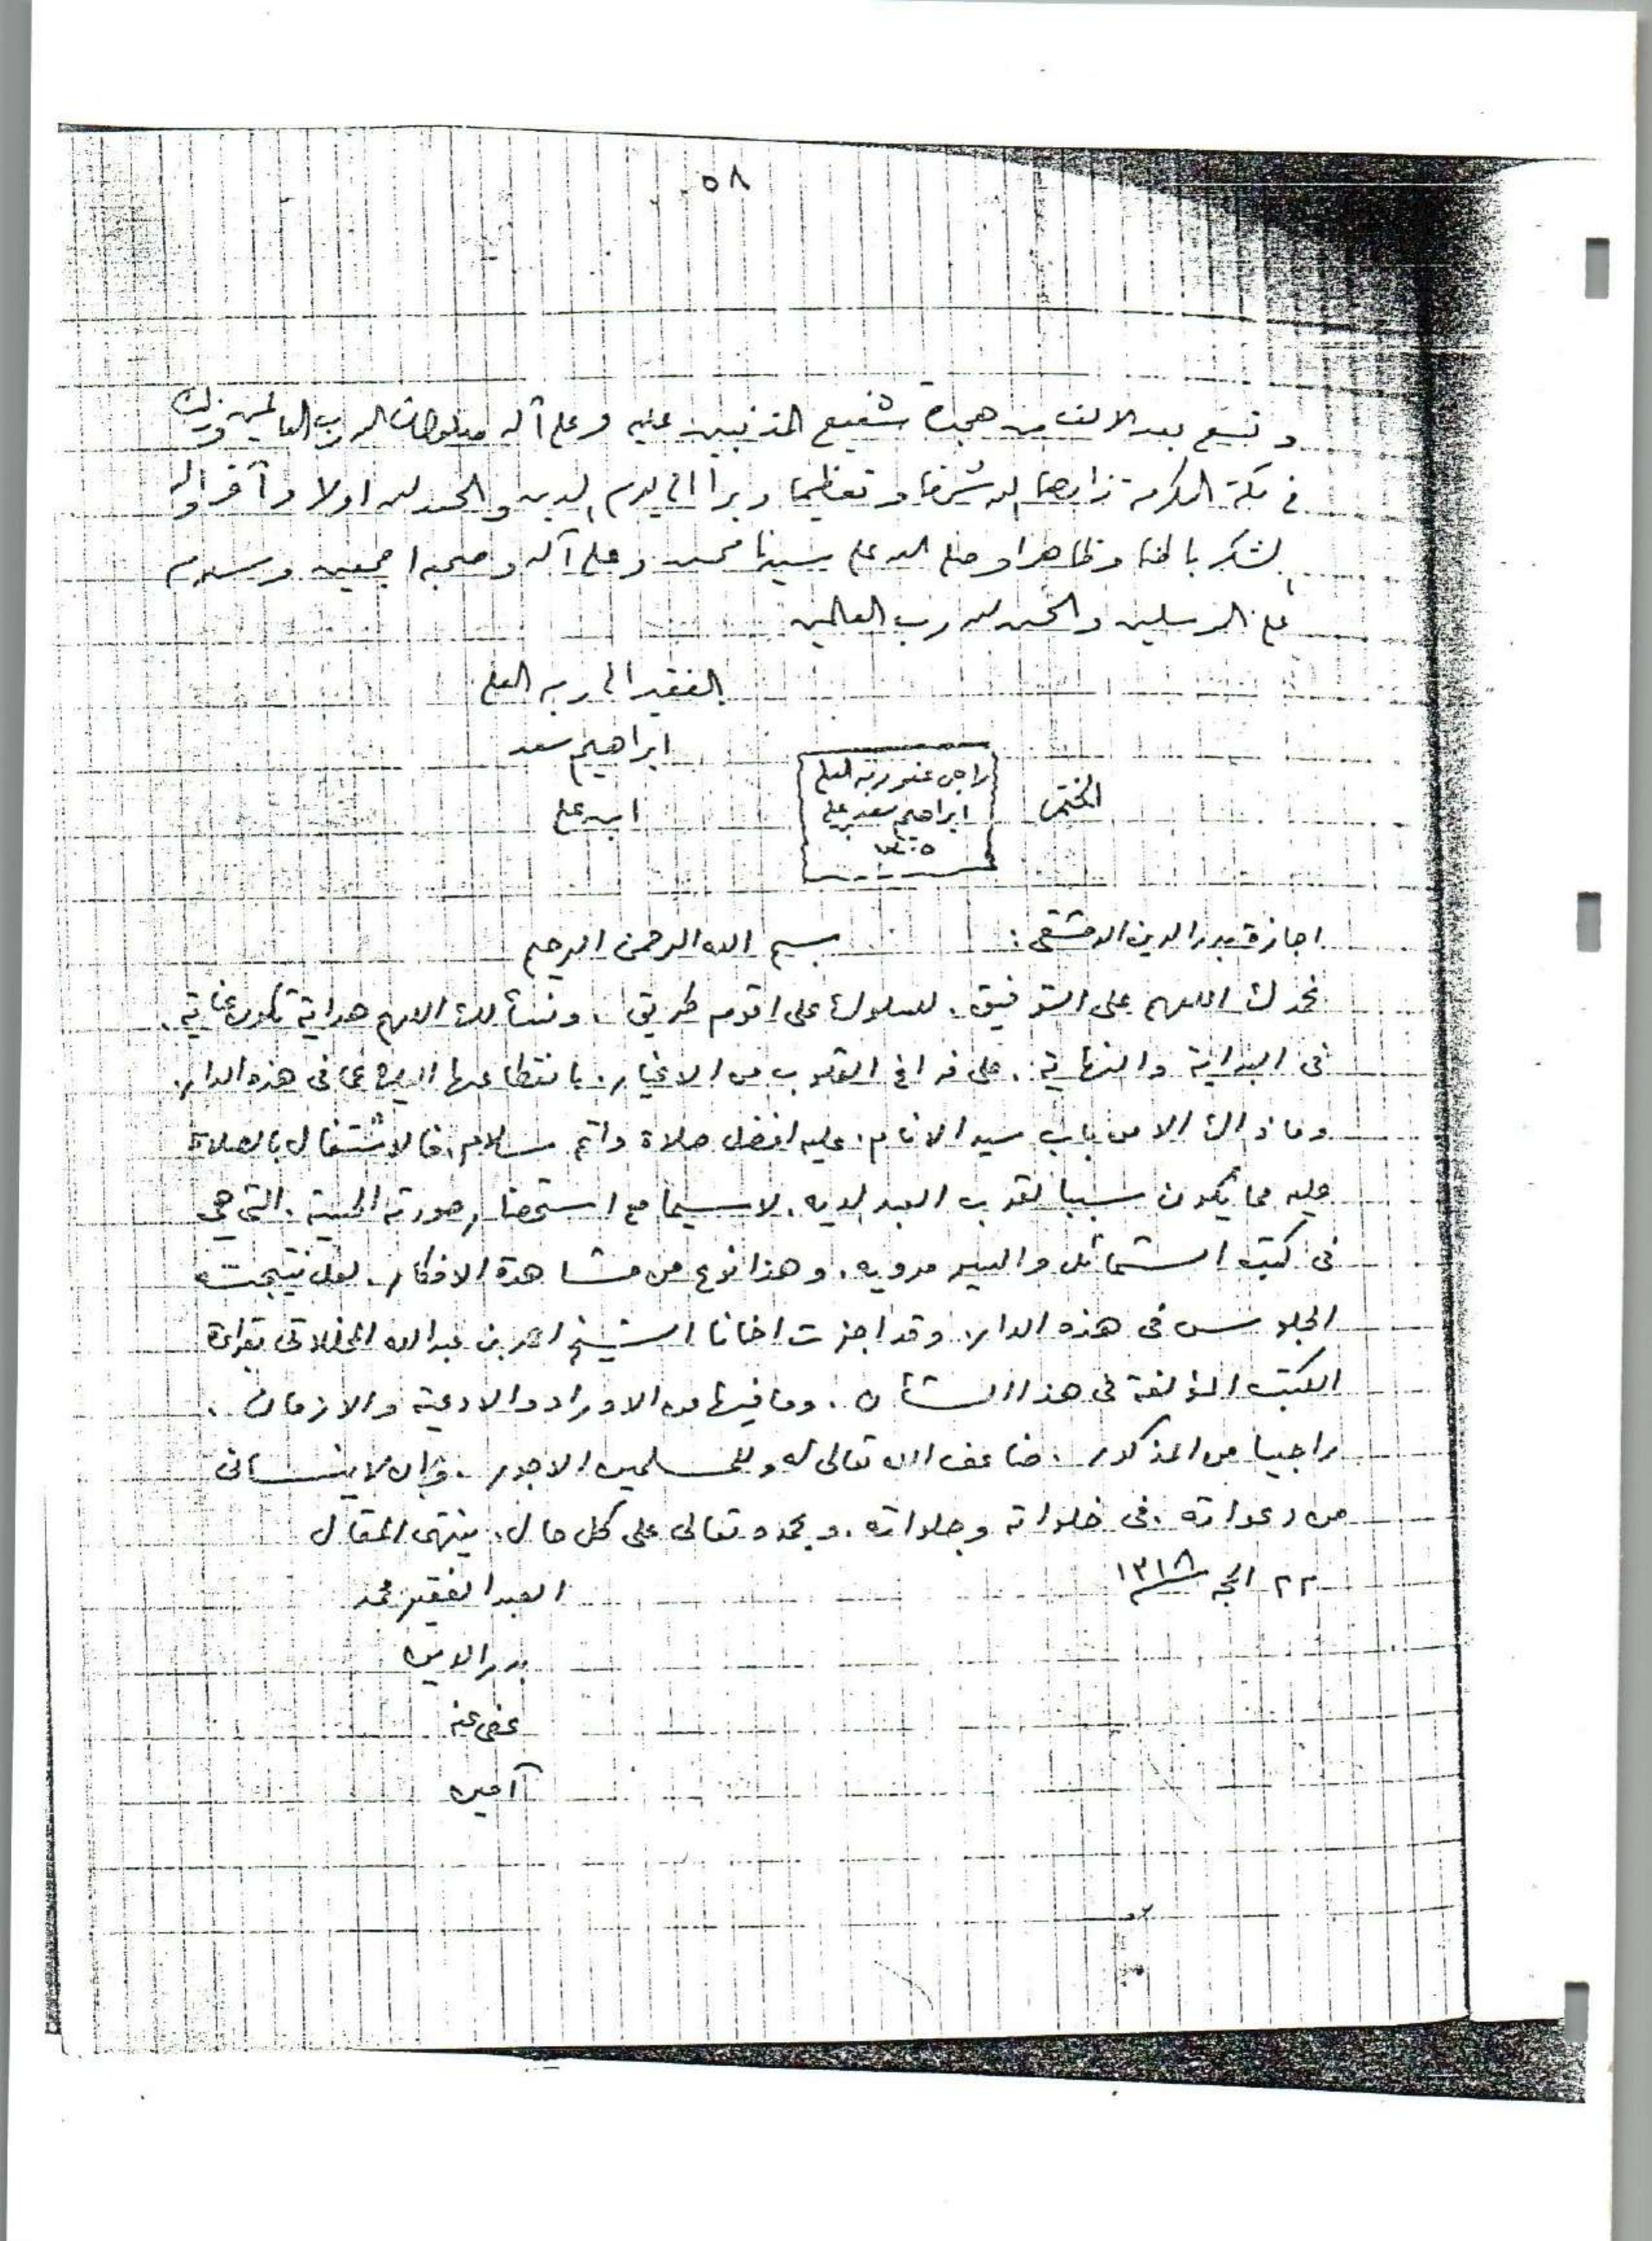 ٥٨
و تسع بعد الالف من هجرة شفيع المذنبين عليه وعلى آله صلوات الله رب العالمين وذلك
في مكة المكرمة زادها الله شرفا و تعظيما و برا الى يوم الدين والحمد لله اولا و آخرا وله
الشكر باطنا و ظاهرا و صلى الله على سيدنا محمد وعلى آله و صحبه اجمعين و سلام
على المرسلين والحمد لله رب العالمين
الفقير الى ربه العلي
ابراهيم سعد
ابن علي
الختم
راجي عفو ربه العلي
ابراهيم سعد بن علي
اجازة بدر الدين الدمشقي : بسم الله الرحمن الرحيم
نحمدك اللهم على التوفيق . للسلوك على اقوم طريق . ونسألك اللهم هداية تكون عناية .
في البداية والنهاية . على فراغ القلوب من الاغيار . بانقطاعها اليك عما في هذه الدار .
وما ذاك الا من باب سيد الانام . عليه افضل صلاة واتم سلام . فالاشتغال بالصلاة
عليه مما يكون سببا لقرب العبد لديه . لا سيما مع استحضار صورته . التي هي
في كتب الشمائل والسير مرويه . وهذا نوع من مشاهدة الافكار . لعل نتيجته
الجلوس في هذه الدار . وقد اجزت اخانا الشيخ احمد بن عبد الله المخللاتي بقراءة
الكتب المؤلفة في هذا الشأن . وما فيها من الاوراد والادعية والازمان .
راجيا من المذكور . ضاعف الله تعالى له وللمسلمين الاجور . وان لا ينساني
من دعواته . في خلواته وجلواته . وبحمده تعالى على كل حال . ينتهي المقال
٢٢ الحجه ١٣١٨
العبد الفقير محمد
بدر الدين
عفي عنه
آمين